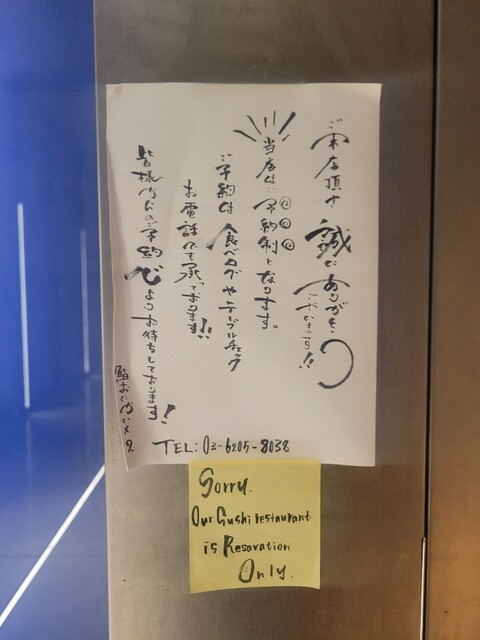 ご来店頂き
誠にありがとう
ございます!!
当店は予約制となります。
ご予約は食べログやテーブルチェック
お電話にても承っております!!
皆様からのご予約
心よりお待ちしております!
鮨おにかいX2
TEL:03-6205-8038
Sorry.
Our Sushi restaurant
is Resavation
Only.